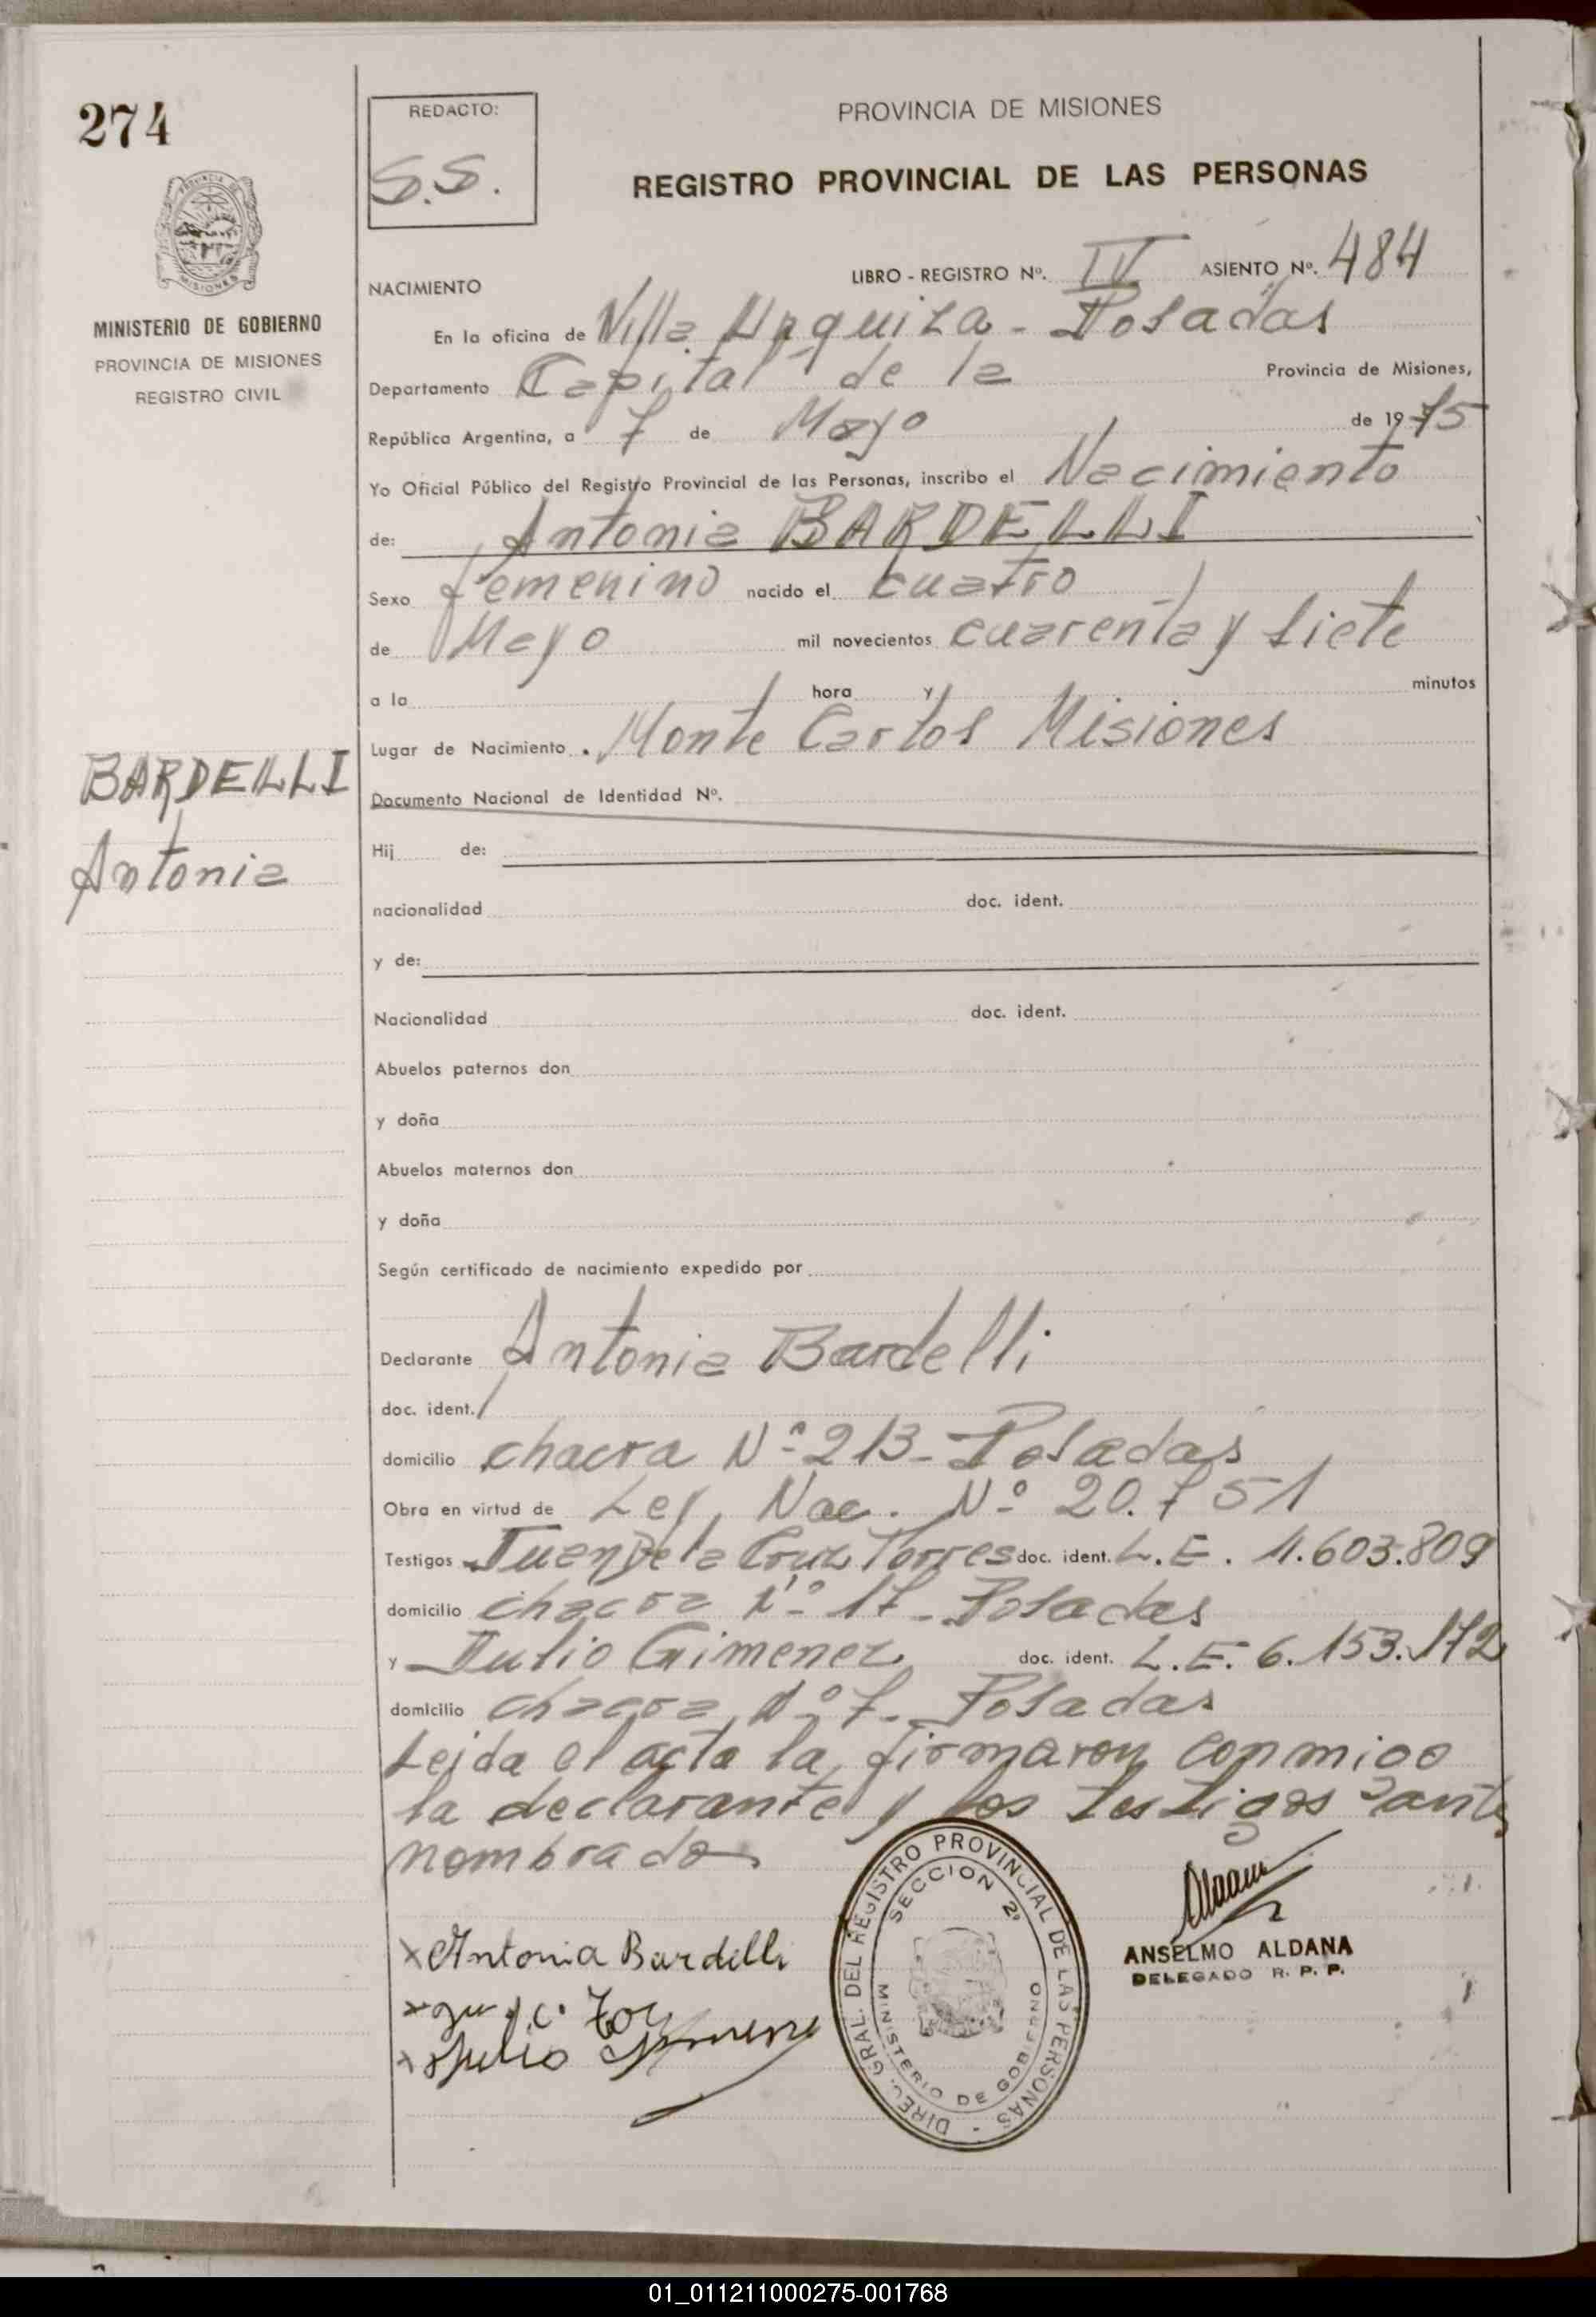 274
MINISTERIO DE GOBIERNO
PROVINCIA DE MISIONES
REGISTRO CIVIL
BARDELLI
Antonia
REDACTO:
S.S.
PROVINCIA DE MISIONES
REGISTRO PROVINCIAL DE LAS PERSONAS
LIBRO - REGISTRO Nº. IV ASIENTO Nº. 484
NACIMIENTO
En la oficina de Villa Urquiza - Posadas
Departamento Capital de la Provincia de Misiones,
República Argentina, a 7 de Mayo de 1975
Yo Oficial Público del Registro Provincial de las Personas, inscribo el Nacimiento
de: Antonia BARDELLI
Sexo femenino nacido el cuatro
de Mayo mil novecientos cuarenta y siete
a la hora y minutos
Lugar de Nacimiento . Monte Carlos Misiones
Documento Nacional de Identidad Nº.
Hij de:
nacionalidad doc. ident.
y de:
Nacionalidad doc. ident.
Abuelos paternos don
y doña
Abuelos maternos don
y doña
Según certificado de nacimiento expedido por
Declarante Antonia Bardelli
doc. ident. /
domicilio chacra Nº 213 - Posadas
Obra en virtud de Ley Nac. Nº 20.751
Testigos Juan De la Cruz Torres doc. ident. L.E. 1.603.809
domicilio chacra Nº 17 - Posadas
y Julio Gimenez doc. ident. L.E. 6.153.172
domicilio chacra Nº 7 - Posadas
Leida el acta la firmaron conmigo
la declarante y los testigos antes
nombrados
x Antonia Bardelli
x Julio
DIREC. GRAL. DEL REGISTRO PROVINCIAL DE LAS PERSONAS -
SECCION 2ª
MINISTERIO DE GOBIERNO
ANSELMO ALDANA
DELEGADO R. P. P.
01_011211000275-001768